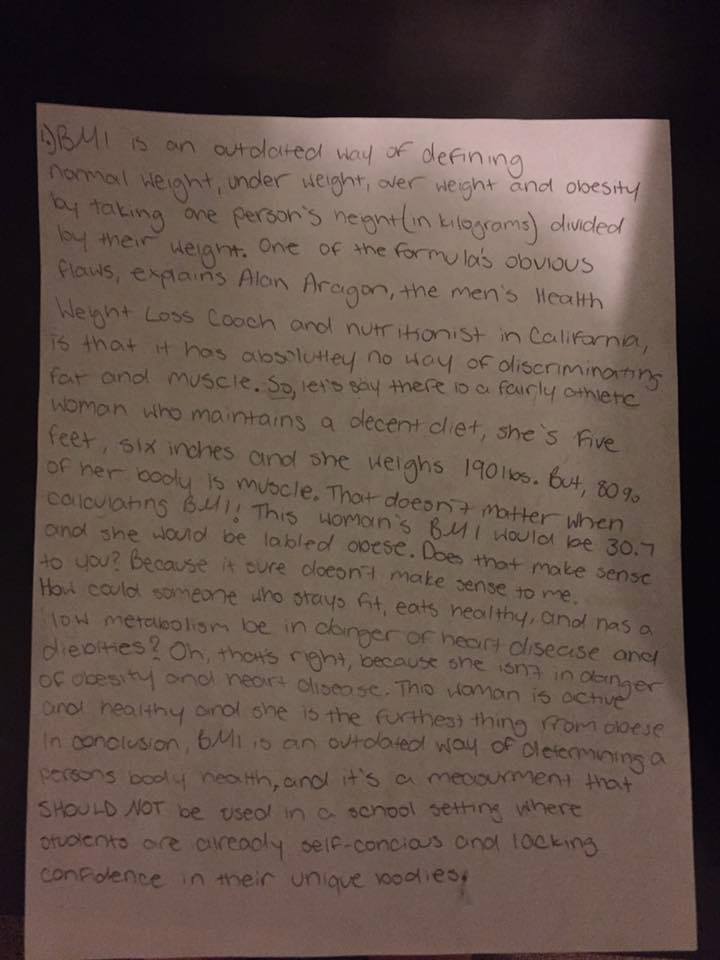 1.) BMI is an outdated way of defining
normal weight, under weight, over weight and obesity
by taking one person's height (in kilograms) divided
by their weight. One of the formula's obvious
flaws, explains Alan Aragon, the men's Health
Weight Loss Coach and nutritionist in California,
is that it has absolutley no way of discriminating
fat and muscle. So, let's say there is a fairly athletic
woman who maintains a decent diet, she's five
feet, six inches and she weighs 190 lbs. But, 80%
of her body is muscle. That doesn't matter when
calculating BMI! This woman's BMI would be 30.7
and she would be labled obese. Does that make sense
to you? Because it sure doesn't make sense to me.
How could someone who stays fit, eats healthy, and has a
low metabolism be in danger of heart disease and
diebities? Oh, that's right, because she isn't in danger
of obesity and heart disease. This woman is active
and healthy and she is the furthest thing from obese
In conclusion, BMI is an outdated way of determining a
persons body health, and it's a measurment that
SHOULD NOT be used in a school setting where
students are already self-concious and lacking
confidence in their unique bodies.